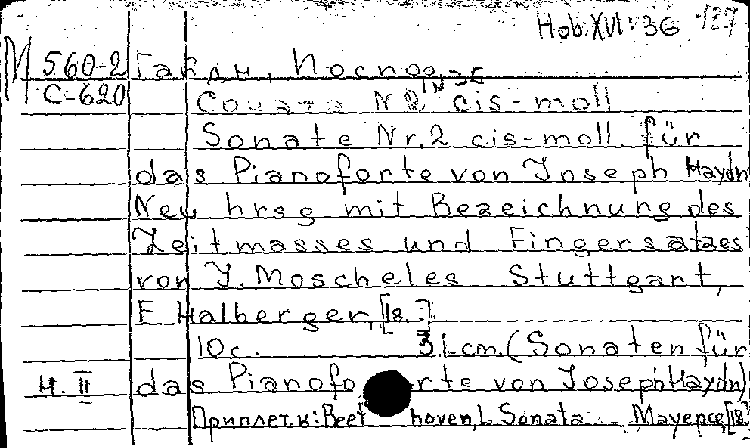 Hob. XVI: 36 127
M 560-2 Гайдн, Иосиф
№36
С-620 Соната №2 cis-moll
Sonate Nr. 2 cis-moll für
das Pianoforte von Joseph Haydn
Neu hrsg mit Bezeichnung des
Zeitmasses und Fingersatzes
von J. Moscheles Stuttgart,
E Halberger, [18..]
10 с. 31 cm. (Sonaten für
Н. II das Pianoforte von Joseph Haydn)
Приплет. к: Beethoven, L Sonata... Mayence, [18]